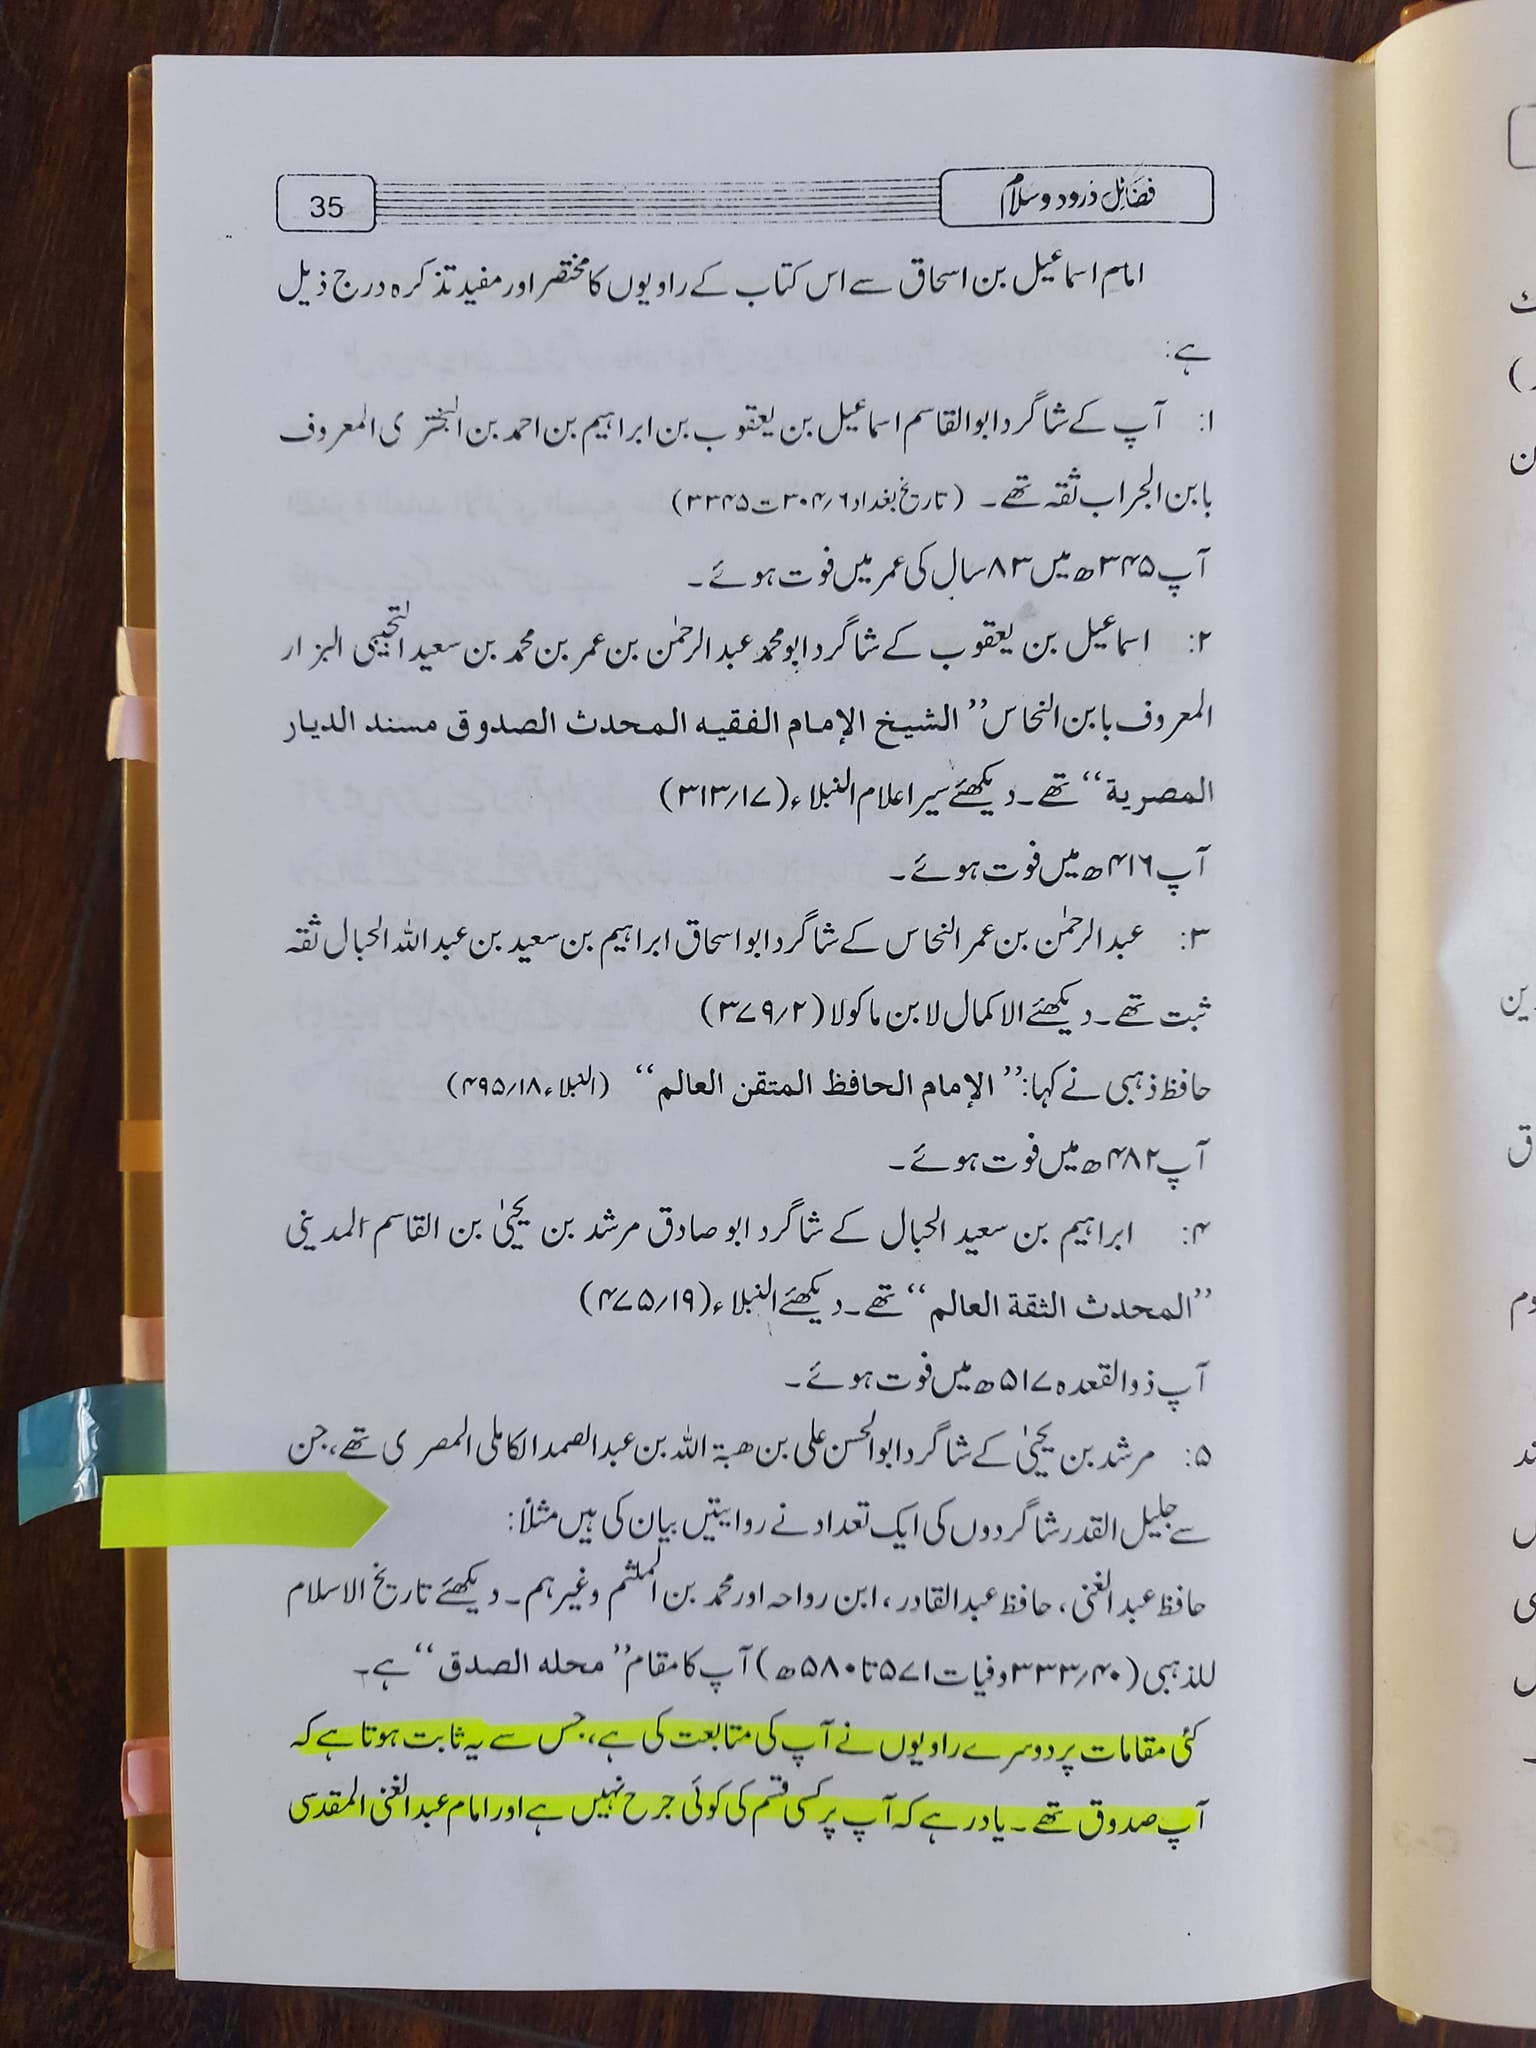 فضائل درود وسلام
35
امام اسماعیل بن اسحاق سے اس کتاب کے راویوں کا مختصر اور مفید تذکرہ درج ذیل
ہے:
۱: آپ کے شاگرد ابوالقاسم اسماعیل بن یعقوب بن ابراہیم بن احمد بن البختری المعروف
بابن الجراب ثقہ تھے۔ (تاریخ بغداد ۶/۳۰۴ ت ۳۳۴۵)
آپ ۳۴۵ھ میں ۸۳ سال کی عمر میں فوت ہوئے۔
۲: اسماعیل بن یعقوب کے شاگرد ابو محمد عبدالرحمٰن بن عمر بن محمد بن سعید التجیبی البزار
المعروف بابن النحاس ’’الشیخ الإمام الفقیہ المحدث الصدوق مسند الدیار
المصریة‘‘ تھے۔ دیکھئے سیر اعلام النبلاء (۱۷/۳۱۳)
آپ ۴۱۶ھ میں فوت ہوئے۔
۳: عبدالرحمٰن بن عمر النحاس کے شاگرد ابواسحاق ابراہیم بن سعید بن عبداللہ الحبال ثقہ
ثبت تھے۔ دیکھئے الاکمال لابن ماکولا (۲/۳۷۹)
حافظ ذہبی نے کہا: ’’الإمام الحافظ المتقن العالم‘‘ (النبلاء ۱۸/۴۹۵)
آپ ۴۸۲ھ میں فوت ہوئے۔
۴: ابراہیم بن سعید الحبال کے شاگرد ابو صادق مرشد بن یحییٰ بن القاسم المدینی
’’المحدث الثقة العالم‘‘ تھے۔ دیکھئے النبلاء (۱۹/۴۷۵)
آپ ذوالقعدہ ۵۱۷ھ میں فوت ہوئے۔
۵: مرشد بن یحییٰ کے شاگرد ابوالحسن علی بن ھبۃ اللہ بن عبدالصمد الکاملی المصری تھے، جن
سے جلیل القدر شاگردوں کی ایک تعداد نے روایتیں بیان کی ہیں مثلاً:
حافظ عبدالغنی، حافظ عبدالقادر، ابن رواحہ اور محمد بن الملثم وغیرہم۔ دیکھئے تاریخ الاسلام
للذہبی (۴۰/۳۳۳ وفیات ۵۷۱ تا ۵۸۰ھ) آپ کا مقام ’’محلہ الصدق‘‘ ہے۔
کئی مقامات پر دوسرے راویوں نے آپ کی متابعت کی ہے، جس سے یہ ثابت ہوتا ہے کہ
آپ صدوق تھے۔ یاد رہے کہ آپ پر کسی قسم کی کوئی جرح نہیں ہے اور امام عبدالغنی المقدسی